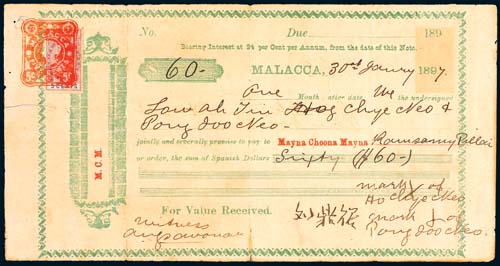 No. Due 189
Bearing Interest at 24 per Cent per Annum, from the date of this Note.
60-
MALACCA, 30th January 1897
One Month after date We the undersigned
Low Ah Tin Hog Chye Neo &
Pong Joo Neo-
jointly and severally promise to pay to Mayna Choona Mayna Ramsamy Pillai
or order, the sum of Spanish Dollars Sixty ($60-)
M.C.M.
mark X of
Ho Chye Neo
mark X of
Pong Joo Neo.
For Value Received.
witness